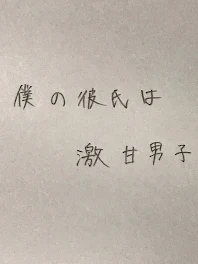 僕の彼氏は
激甘男子